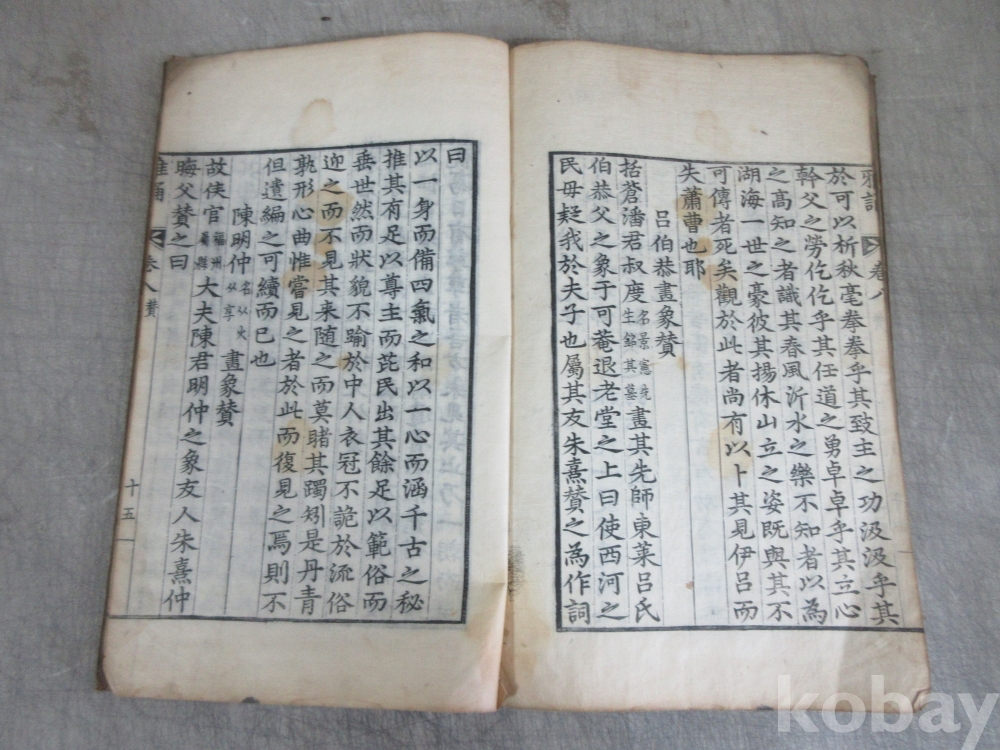 雅誦 卷八
於可以析秋毫拳拳乎其致主之功汲汲乎其
幹父之勞仡仡乎其任道之勇卓卓乎其立心
之高知之者識其春風沂水之樂不知者以為
湖海一世之豪彼其揚休山立之姿既與其不
可傳者死矣觀於此者尚有以卜其見伊呂而
失蕭曹也耶
呂伯恭畫象贊
括蒼潘君叔度名景憲先生銘其墓畫其先師東萊呂氏
伯恭父之象于可菴退老堂之上曰使西河之
民毋疑我於夫子也屬其友朱熹贊之為作詞
曰
以一身而備四氣之和以一心而涵千古之秘
推其有足以尊主而芘民出其餘足以範俗而
垂世然而狀貌不踰於中人衣冠不詭於流俗
迎之而不見其來随之而莫睹其躅矧是丹青
孰形心曲惟嘗見之者於此而復見之焉則不
但遺編之可續而已也
陳明仲名从火从享畫象贊
故侯官福州屬縣大夫陳君明仲之象友人朱熹仲
晦父贊之曰
雅誦 卷八 贊 十五
kobay